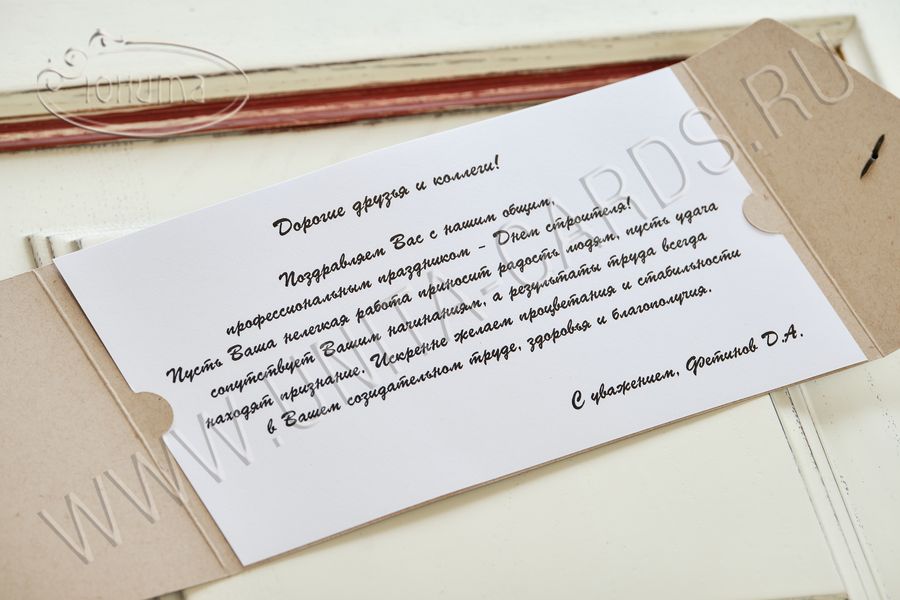 Юнита
WWW.UNITA-CARDS.RU
Дорогие друзья и коллеги!
Поздравляем Вас с нашим общим,
профессиональным праздником - Днем строителя!
Пусть Ваша нелегкая работа приносит радость людям, пусть удача
сопутствует Вашим начинаниям, а результаты труда всегда
находят признание. Искренне желаем процветания и стабильности
в Вашем созидательном труде, здоровья и благополучия.
С уважением, Фетинов Д.А.